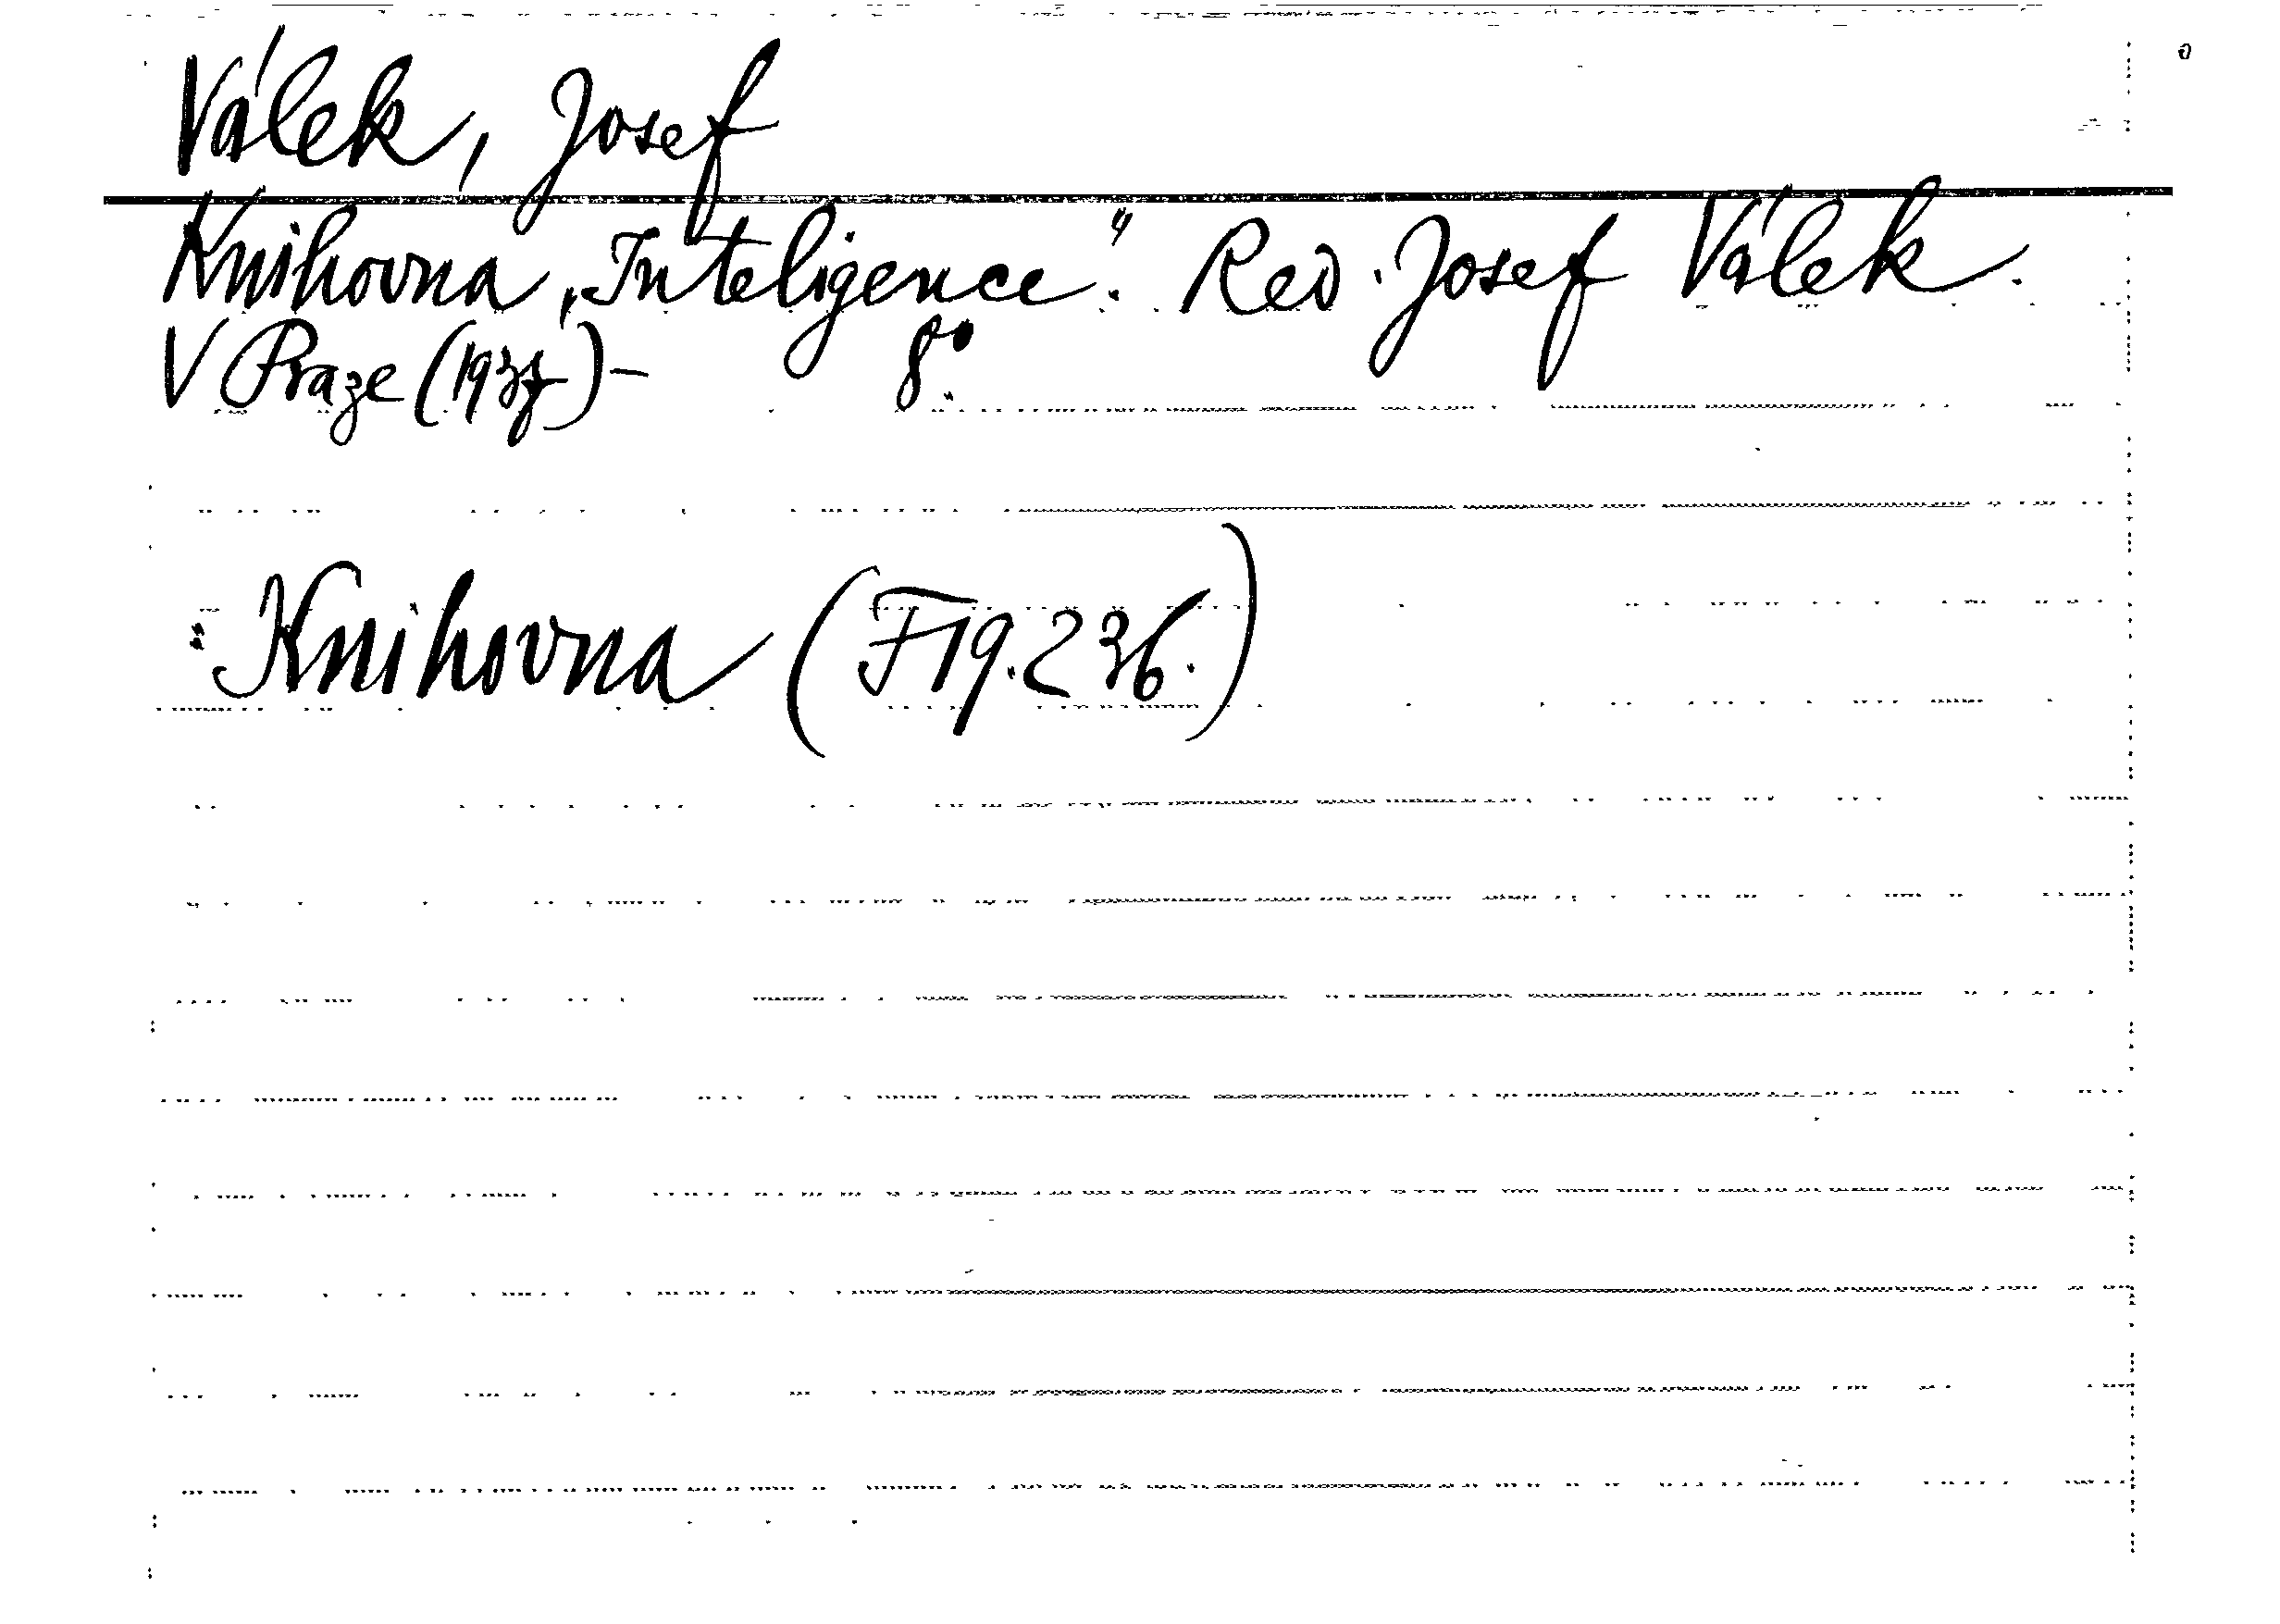 Válek, Josef
Knihovna „Inteligence“. Red. Josef Válek.
V Praze (1937)- 8°.
Knihovna (F19.236.)